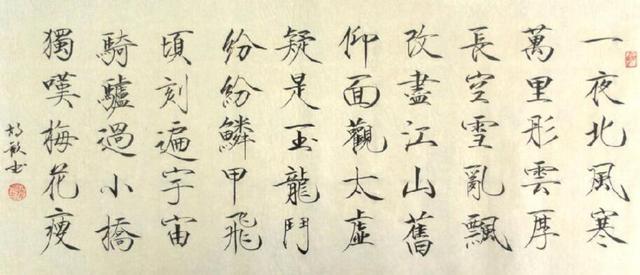 一夜北風寒
萬里彤雲厚
長空雪亂飄
改盡江山舊
仰面觀太虛
疑是玉龍鬥
紛紛鱗甲飛
頃刻遍宇宙
騎驢過小橋
獨嘆梅花瘦
书